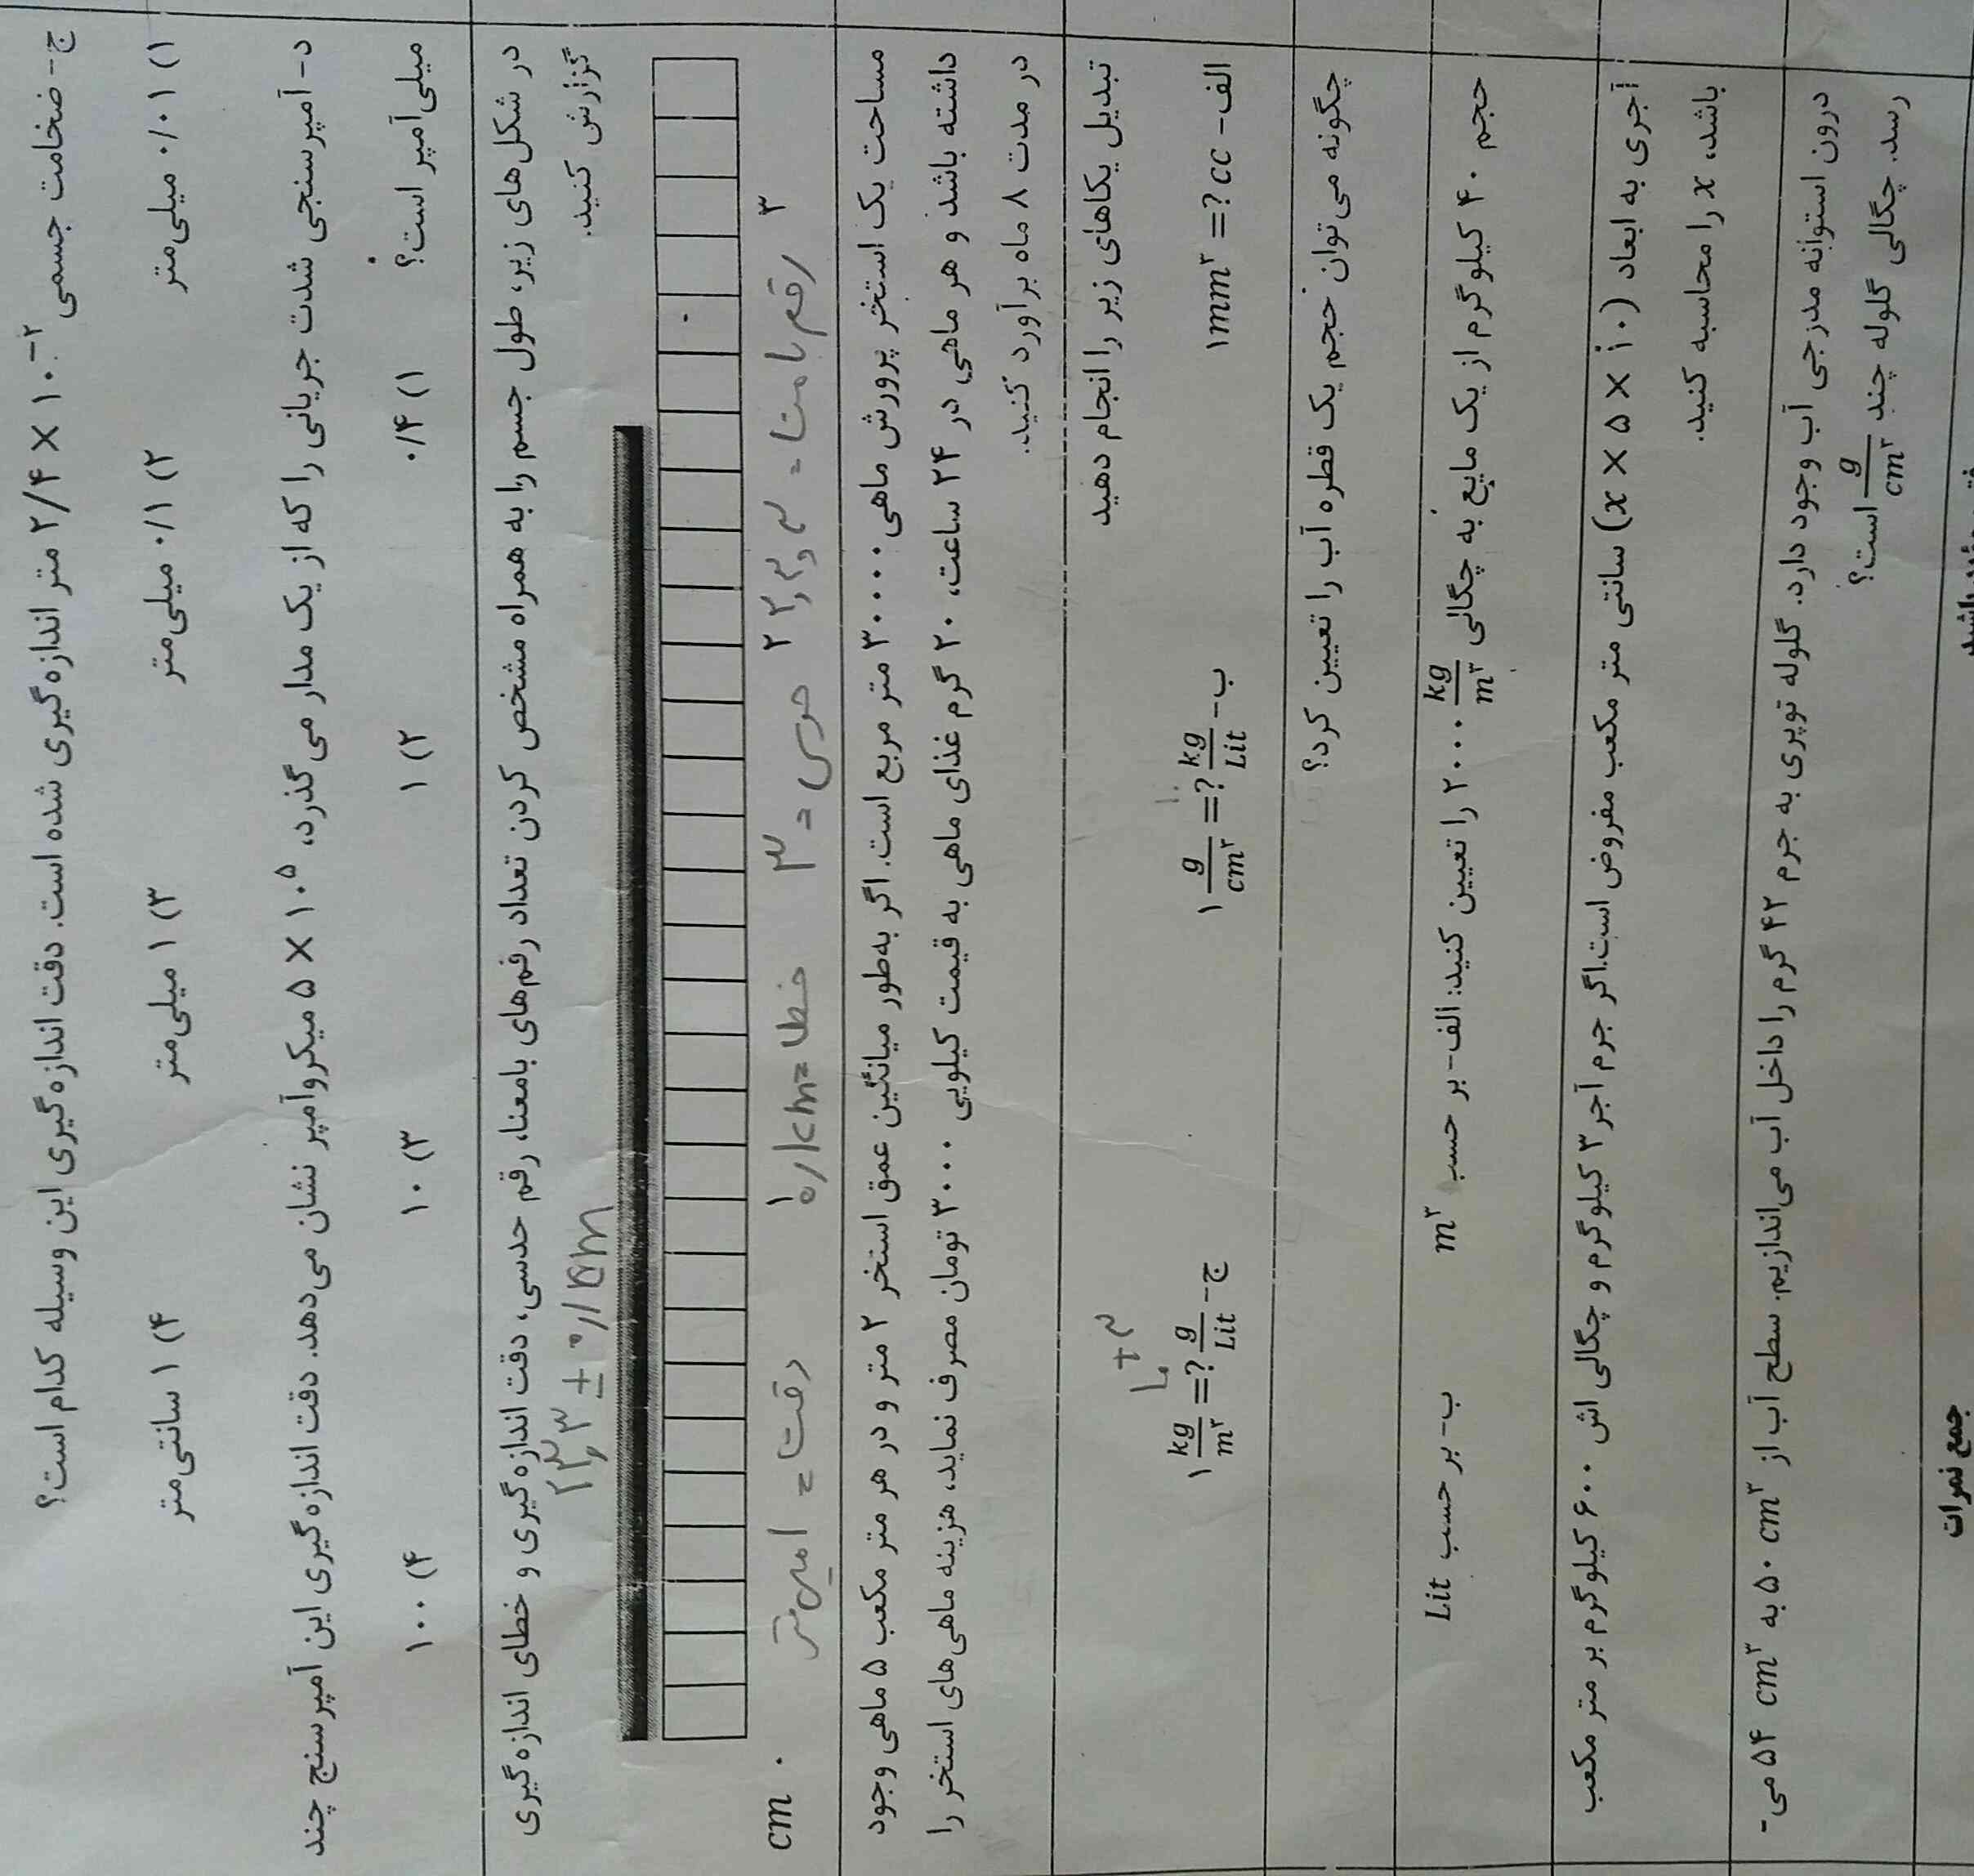 ج- ضخامت جسمی ۲/۴ × ۱۰⁻² متر اندازه‌گیری شده است. دقت اندازه‌گیری این وسیله کدام است؟
۱) ۰/۰۱ میلی‌متر ۲) ۰/۱ میلی‌متر ۳) ۱ میلی‌متر ۴) ۱ سانتی‌متر
د- آمپرسنجی شدت جریانی را که از یک مدار می‌گذرد، ۵ × ۱۰⁵ میکروآمپر نشان می‌دهد. دقت اندازه‌گیری این آمپرسنج چند
میلی‌آمپر است؟
۱) ۰/۴ ۲) ۱ ۳) ۱۰ ۴) ۱۰۰
در شکل‌های زیر، طول جسم را به همراه مشخص کردن تعداد رقم‌های بامعنا، رقم حدسی، دقت اندازه‌گیری و خطای اندازه‌گیری
گزارش کنید.
۲۳,۳ ± ۰/۵m
cm ۰ ۱ ۲ ۳
رقم بامعنا = ۳ حدسی = ۳ خطا = ۰/۵m دقت = ۱ میلی‌متر
مساحت یک استخر پرورش ماهی ۳۰۰۰۰ متر مربع است. اگر به‌طور میانگین عمق استخر ۲ متر و در هر متر مکعب ۵ ماهی وجود
داشته باشد و هر ماهی در ۲۴ ساعت، ۲۰ گرم غذای ماهی به قیمت کیلویی ۳۰۰۰ تومان مصرف نماید، هزینه ماهی‌های استخر را
در مدت ۸ ماه برآورد کنید.
تبدیل یکاهای زیر را انجام دهید
الف- ۱mm³ =? cc ب- ۱ g/cm³ =? kg/Lit ج- ۱ kg/m³ =? g/Lit
چگونه می‌توان حجم یک قطره آب را تعیین کرد؟
حجم ۴۰ کیلوگرم از یک مایع به چگالی ۲۰۰۰ kg/m³ را تعیین کنید: الف- بر حسب m³ ب- بر حسب Lit
آجری به ابعاد (x × ۵ × ۱۰) سانتی متر مکعب مفروض است.اگر جرم آجر ۳ کیلوگرم و چگالی اش ۶۰۰ کیلوگرم بر متر مکعب
باشد، x را محاسبه کنید.
درون استوانه مدرجی آب وجود دارد. گلوله توپری به جرم ۴۲ گرم را داخل آب می‌اندازیم. سطح آب از ۵۰ cm³ به ۵۴ cm³ می-
رسد. چگالی گلوله چند g/cm³ است؟
جمع نمرات